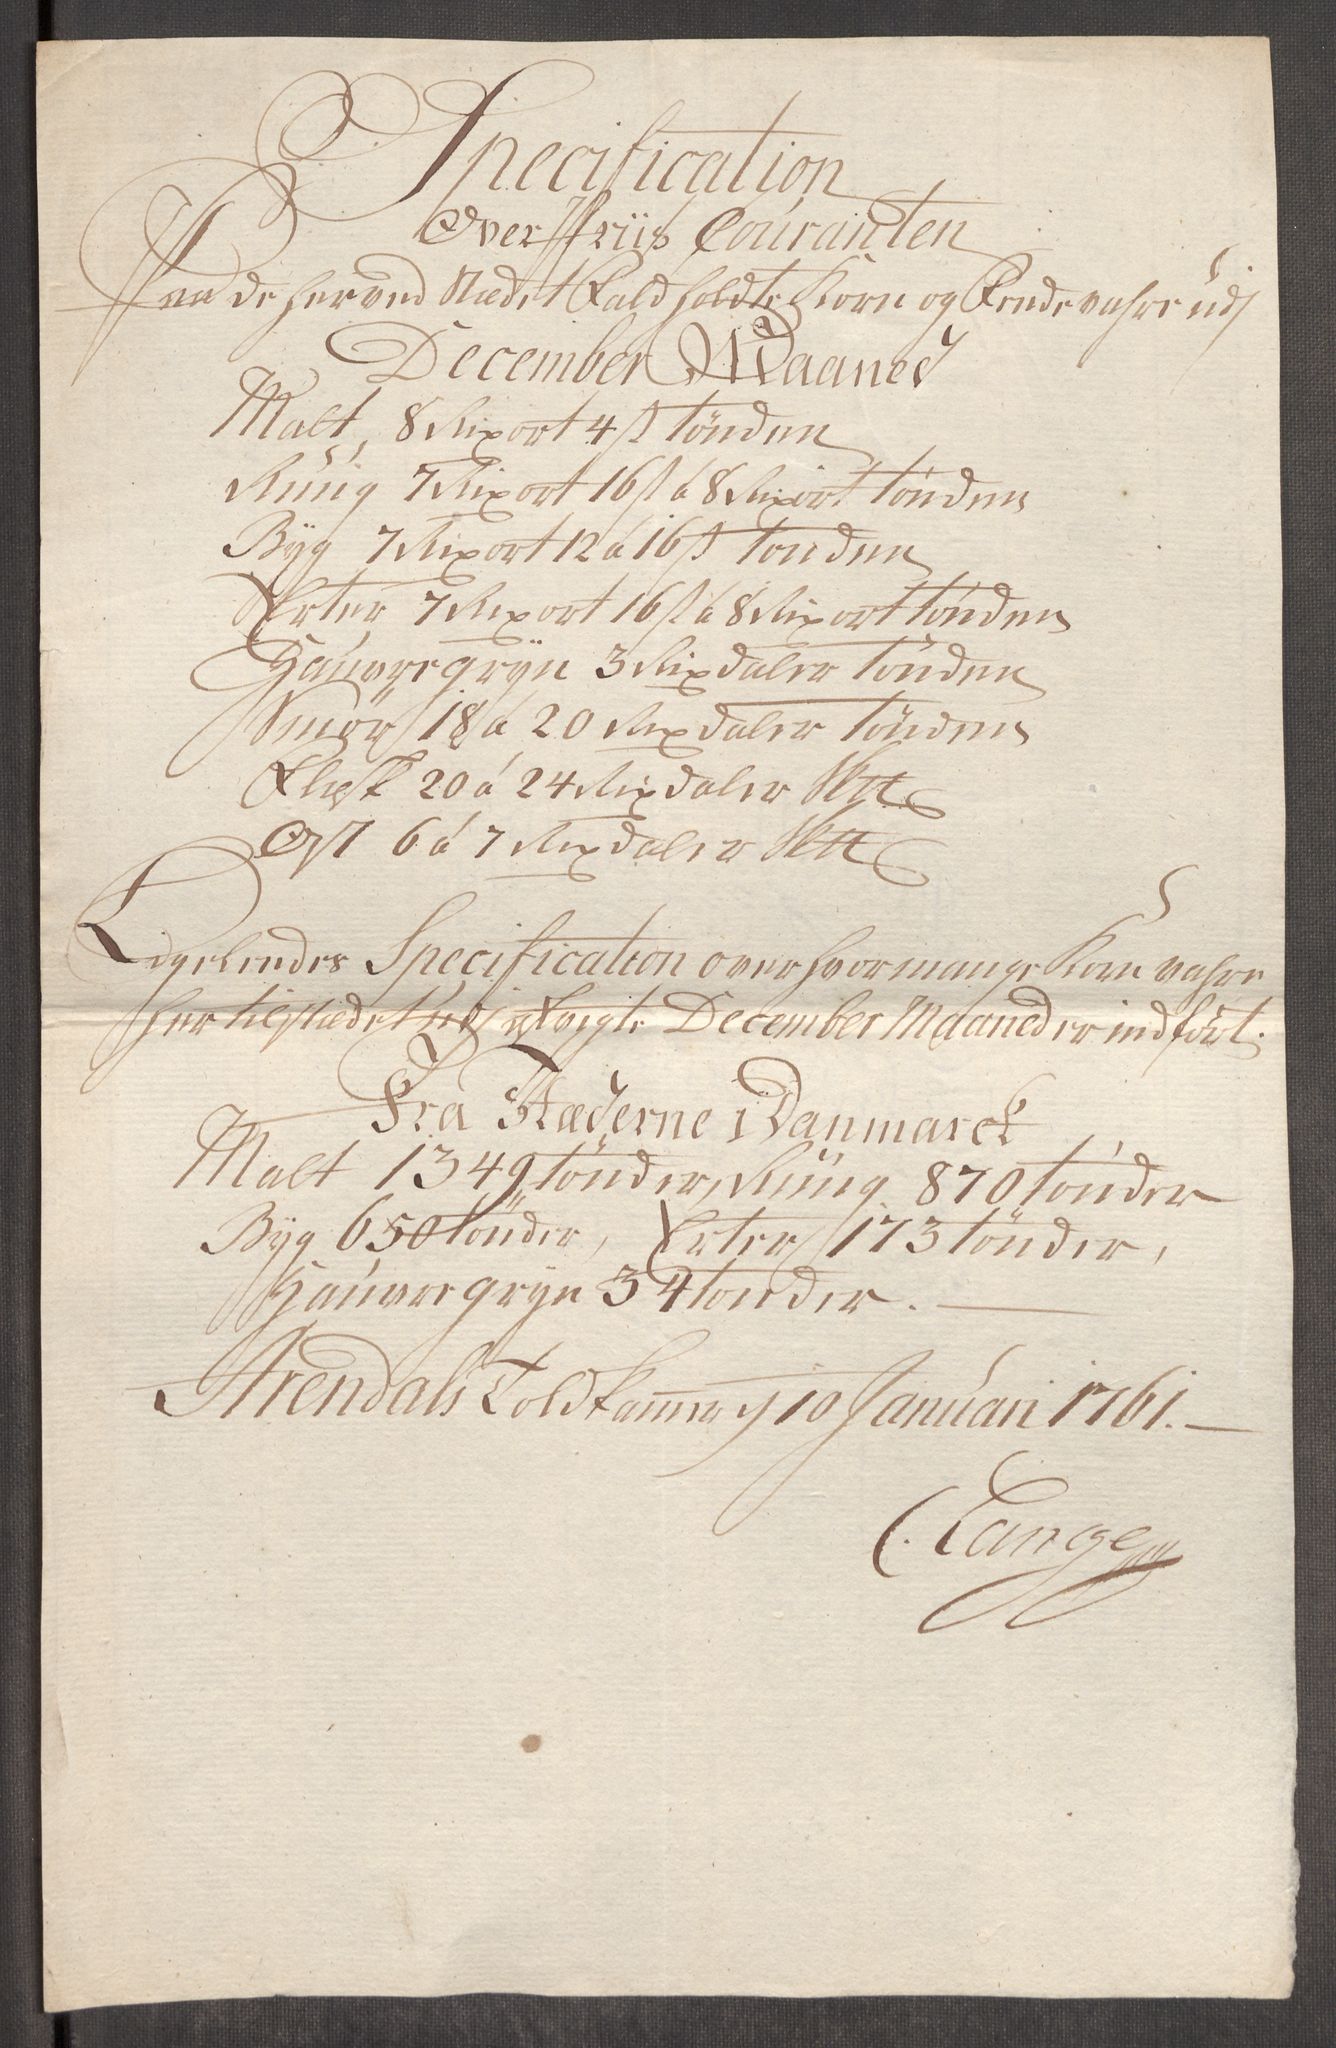 Specification
Over Priis Couranten
Paa de her ved Stædet Fald holdte Korn og Fendevahre udj
December Maaned
Malt, 8 Rixort 4 s tönden
Rüug 7 Rixort 16 s á 8 Rixort tönden
Byg 7 Rixort 12 á 16 s tonden
Erter 7 Rixort 16 s á 8 Rixort tönden
Haúvregryn 3 Rixdaler tönden
Smör 18 á 20 Rixdaler tönden
Flesk 20 á 24 Rixdaler
Ost 6 á 7 Rixdaler
Ligeleedes Specification over hvormange Korn vahre
her til stædet udj December Maaned er indfört.
Fra Stæderne i Danmarck
Malt 1349 tönder, Rüug 870 tönder
Byg 650 tönder, Erter 173 tönder,
Haúvregryn 34 tonder.
Arendals Toldkammer d 10 Januari 1761.
C. Lange